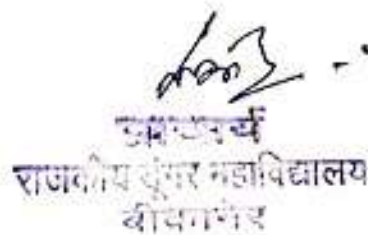 प्राचार्य
राजकीय डूंगर महाविद्यालय
बीकानेर